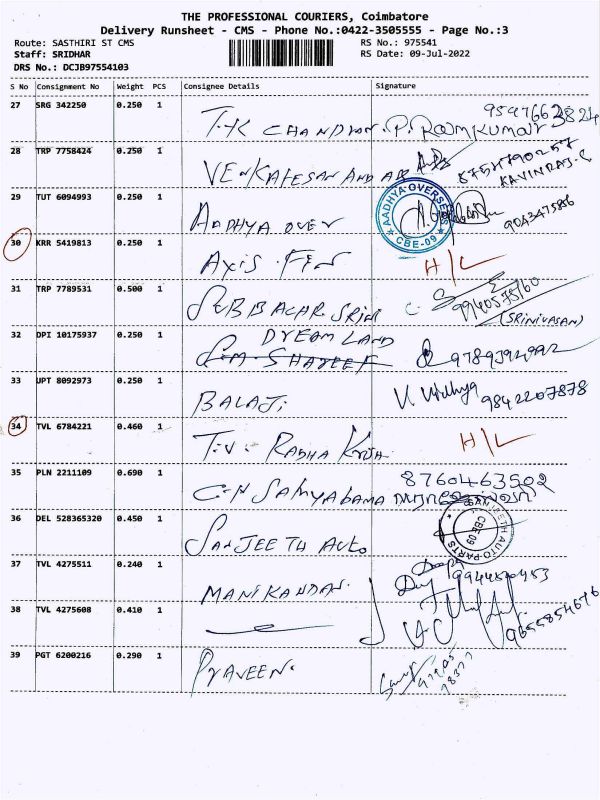 THE PROFESSIONAL COURIERS, Coimbatore
Delivery Runsheet - CMS - Phone No.:0422-3505555 - Page No.:3
Route: SASTHIRI ST CMS
Staff: SRIDHAR
DRS No.: DCJB97554103
RS No.: 975541
RS Date: 09-Jul-2022
S No Consignment No Weight PCS Consignee Details Signature
27 SRG 342250 0.250 1 T.K CHANDRAN. P. Ramkumar 9597663824
28 TRP 7758424 0.250 1 VENKATESAN AND AR KAVINRAJ.C
29 TUT 6094993 0.250 1 AADHYA OVER AADHYA OVERSEAS CBE-09 9043475886
30 KRR 5419813 0.250 1 AXIS FIN H/L
31 TRP 7789531 0.500 1 9940575160
(SRINIVASAN)
32 DPI 10175937 0.250 1 DREAM LAND 9789392992
33 UPT 8092973 0.250 1 BALAJI V. Vidhya 9842207878
34 TVL 6784221 0.460 1 T.V. RADHA H/L
35 PLN 2211109 0.690 1 C.N Sathyabama 8760463502
36 DEL 528365320 0.450 1 SANJEETH AUTO SANJEETH AUTO PARTS CBE 09
37 TVL 4275511 0.240 1 MANIKANDAN. Deepa
38 TVL 4275608 0.410 1 9655854676
39 PGT 6200216 0.290 1 PRAVEEN.